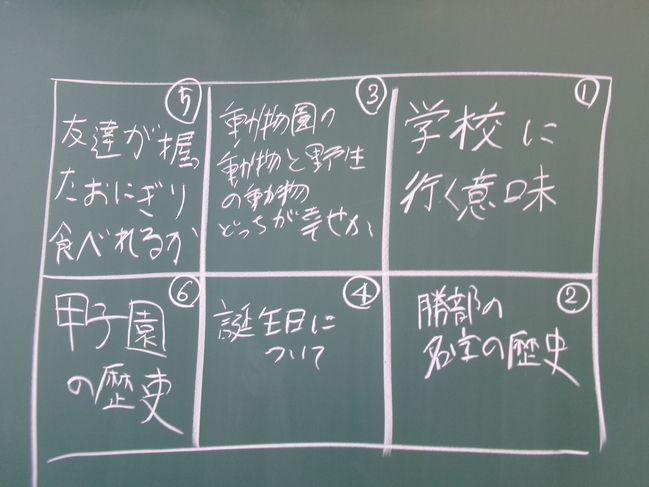 ①
学校に
行く意味
②
勝部の
名字の歴史
③
動物園の
動物と野生
の動物
どっちが幸せか
④
誕生日に
ついて
⑤
友達が握っ
たおにぎり
食べれるか
⑥
甲子園
の歴史